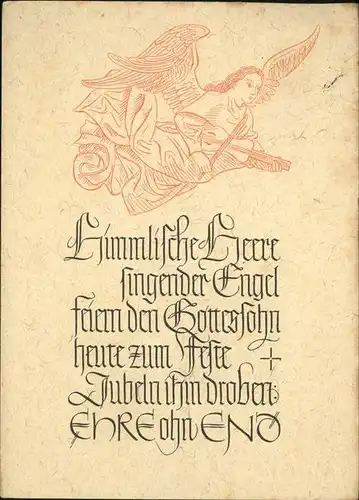 Himmlische Heere
singender Engel
feiern den Gottessohn
heute zum Feste +
Jubeln ihm droben:
EHRE ohn END